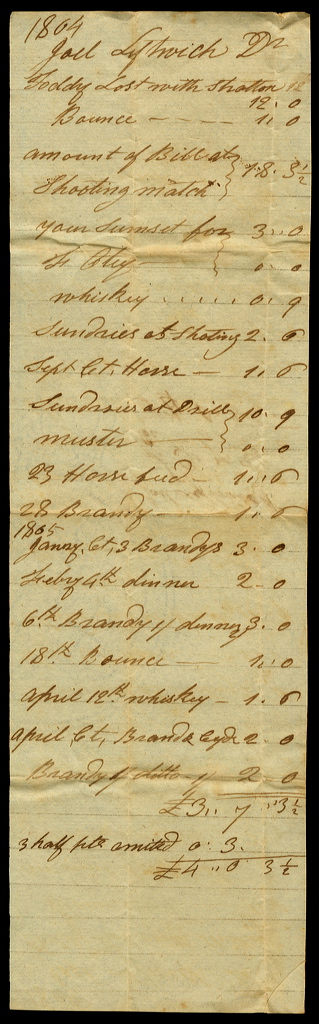 1804
Joel Leftwich Dr
Toddy Lost with Stratton 12
12. 0
Bounce - - - - 1. 0
amount of Bill at } 1. 8. 3 1/2
Shooting match }
your sumset for } 3. 0
} 0. 0
whiskey ..... 0. 9
Sundries at Shoting 2. 6
Sept Ct, Horse — 1. 6
Sundries at Drill } 10. 9
muster — } 0. 0
23 Horse feed — 1. 6
28 Brandy — 1. 6
1805
Janry. Ct, 3 Brandys 3. 0
Febry 4th dinner 2 - 0
6th Brandy & dinner 3. 0
18th Bounce — 1. 0
April 12th whiskey — 1. 6
April Ct, Brand & Cyde 2 - 0
Brandy & ditto 2 - 0
£3,, 7 ,, 3 1/2
3 half pts omited 0. 3.
£4 ,, 0 3 1/2